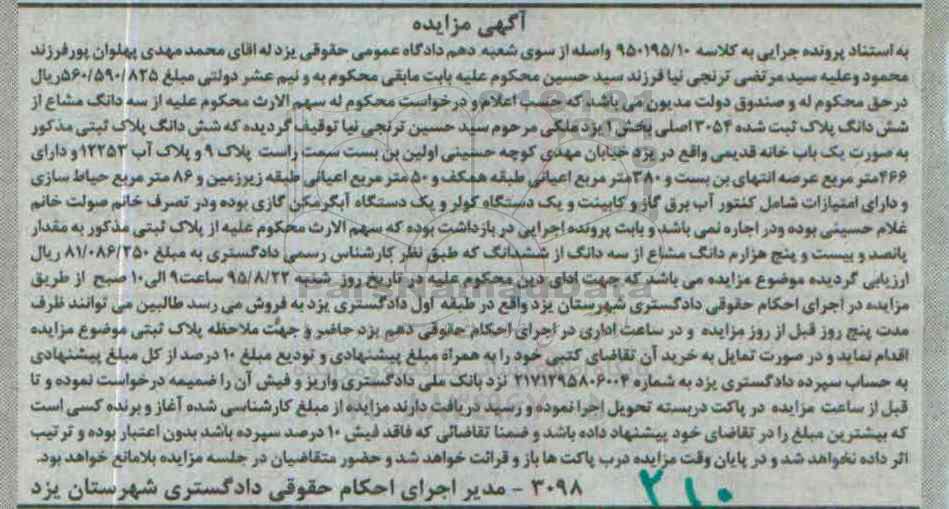 آگهی مزایده
به استناد پرونده جرایی به کلاسه ۹۵۰۱۹۵/۱۰ واصله از سوی شعبه دهم دادگاه عمومی حقوقی یزد له اقای محمد مهدی پهلوان پور فرزند
محمود وعلیه سید مرتضی ترنجی نیا فرزند سید حسین محکوم علیه بابت مابقی محکوم به و نیم عشر دولتی مبلغ ۵۶۰/۵۹۰/۸۲۵ریال
درحق محکوم له و صندوق دولت مدیون می باشد که حسب اعلام و درخواست محکوم له سهم الارث محکوم علیه از سه دانگ مشاع از
شش دانگ پلاک ثبت شده ۳۰۵۴ اصلی بخش ۱ یزد ملکی مرحوم سید حسین ترنجی نیا توقیف گردیده که شش دانگ پلاک ثبتی مذکور
به صورت یک باب خانه قدیمی واقع در یزد خیابان مهدی کوچه حسینی اولین بن بست سمت راست پلاک ۹ و پلاک آب ۱۲۲۵۳ و دارای
۴۶۶متر مربع عرصه انتهای بن بست و ۳۸۰متر مربع اعیانی طبقه همکف و ۵۰ متر مربع اعیانی طبقه زیرزمین و ۸۶ متر مربع حیاط سازی
و دارای امتیازات شامل کنتور آب برق گاز و کابینت و یک دستگاه کولر و یک دستگاه آبگرمکن گازی بوده ودر تصرف خانم صولت خانم
غلام حسینی بوده ودر اجاره نمی باشد و بابت پرونده اجرایی در بازداشت بوده که سهم الارث محکوم علیه از پلاک ثبتی مذکور به مقدار
پانصد و بیست و پنج هزارم دانگ مشاع از سه دانگ از ششدانگ که طبق نظر کارشناس رسمی دادگستری به مبلغ ۸۱/۰۸۶/۲۵۰ ریال
ارزیابی گردیده موضوع مزایده می باشد که جهت ادای دین محکوم علیه در تاریخ روز شنبه ۹۵/۸/۲۲ ساعت۹ الی ۱۰ صبح از طریق
مزایده در اجرای احکام حقوقی دادگستری شهرستان یزد واقع در طبقه اول دادگستری یزد به فروش می رسد طالبین می توانند ظرف
مدت پنج روز قبل از روز مزایده و در ساعت اداری در اجرای احکام حقوقی دهم یزد حاضر و جهت ملاحظه پلاک ثبتی موضوع مزایده
اقدام نماید و در صورت تمایل به خرید آن تقاضای کتبی خود را به همراه مبلغ پیشنهادی و تودیع مبلغ ۱۰ درصد از کل مبلغ پیشنهادی
به حساب سپرده دادگستری یزد به شماره ۲۱۷۱۲۹۵۸۰۶۰۰۴ نزد بانک ملی دادگستری واریز و فیش آن را ضمیمه درخواست نموده و تا
قبل از ساعت مزایده در پاکت دربسته تحویل اجرا نموده و رسید دریافت دارند مزایده از مبلغ کارشناسی شده آغاز و برنده کسی است
که بیشترین مبلغ را در تقاضای خود پیشنهاد داده باشد و ضمنا تقاضائی که فاقد فیش ۱۰ درصد سپرده باشد بدون اعتبار بوده و ترتیب
اثر داده نخواهد شد و در پایان وقت مزایده درب پاکت ها باز و قرائت خواهد شد و حضور متقاضیان در جلسه مزایده بلامانع خواهد بود.
۳۰۹۸ - مدیر اجرای احکام حقوقی دادگستری شهرستان یزد
۲۱۰